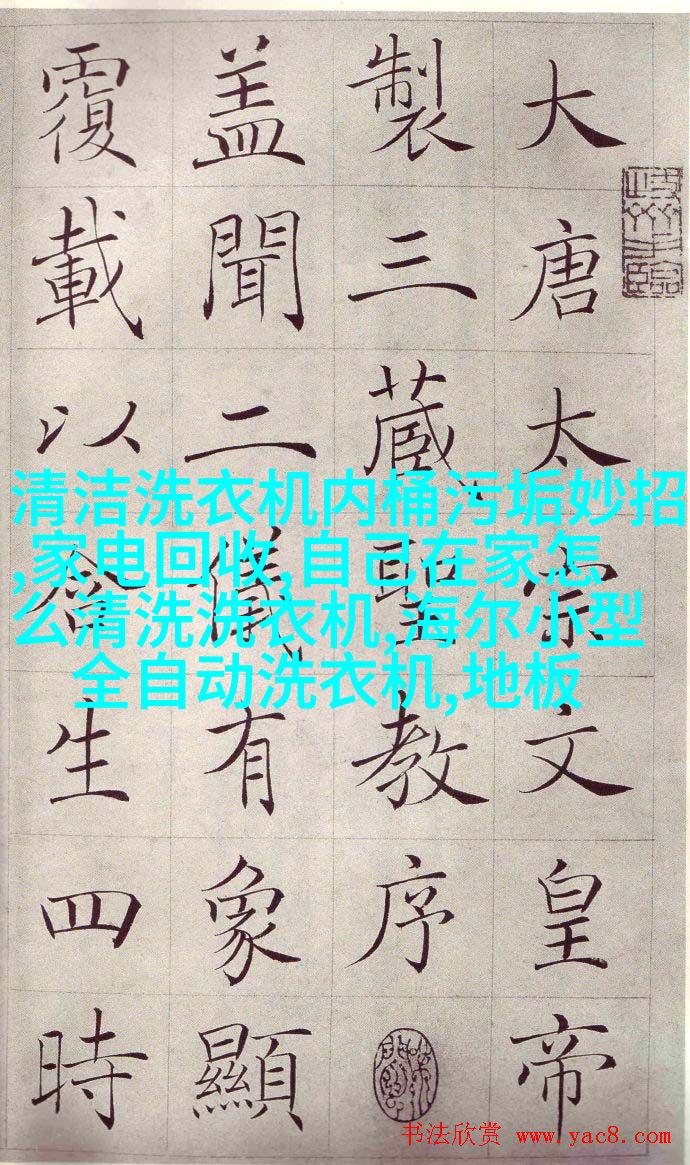 大唐太宗文皇帝
製三蔵聖教序
盖聞二儀有象顯
覆載以含生四時
清洁洗衣机内桶污垢妙招
,家电回收,自己在家怎
么清洗洗衣机,海尔小型
全自动洗衣机,地板
书法欣赏 www.yac8.com